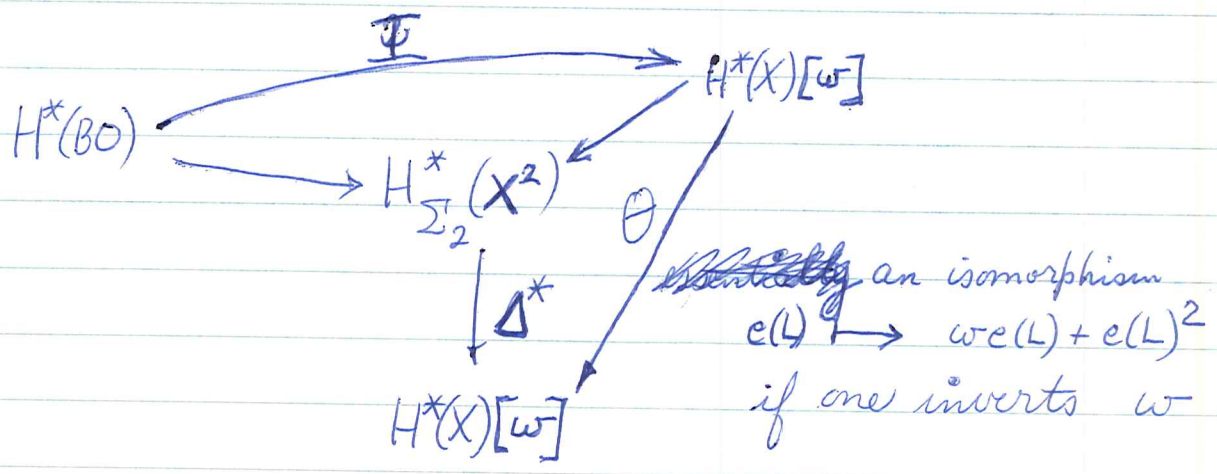 Ψ
H*(X)[w]
H*(BO)
H*_Σ₂(X²)
θ
an isomorphism
Δ*
e(L) ↦ we(L) + e(L)²
if one inverts w
H*(X)[w]